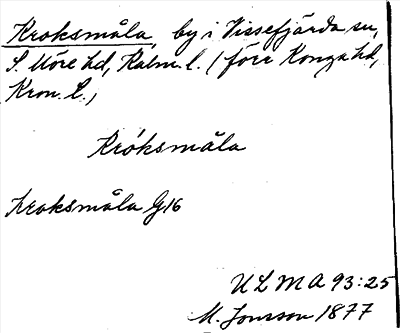 Kroksmåla, by i Vissefjärda sn,
S. Möre hd, Kalm. l. (förr Konga hd,
Kron. l.)
Króksmåla
Kroksmåla G16
ULMA 93:25
M. Jonsson 1877